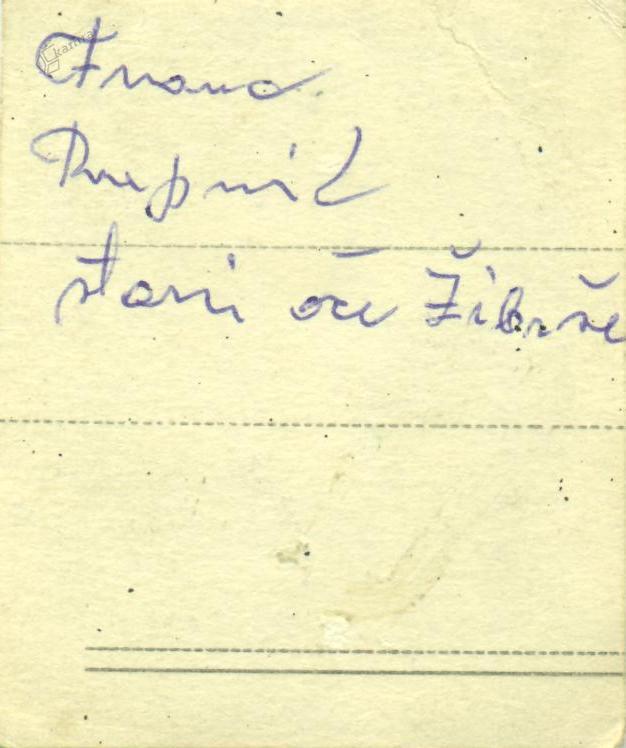 Franc
Rupnik
stari oče Žibrše